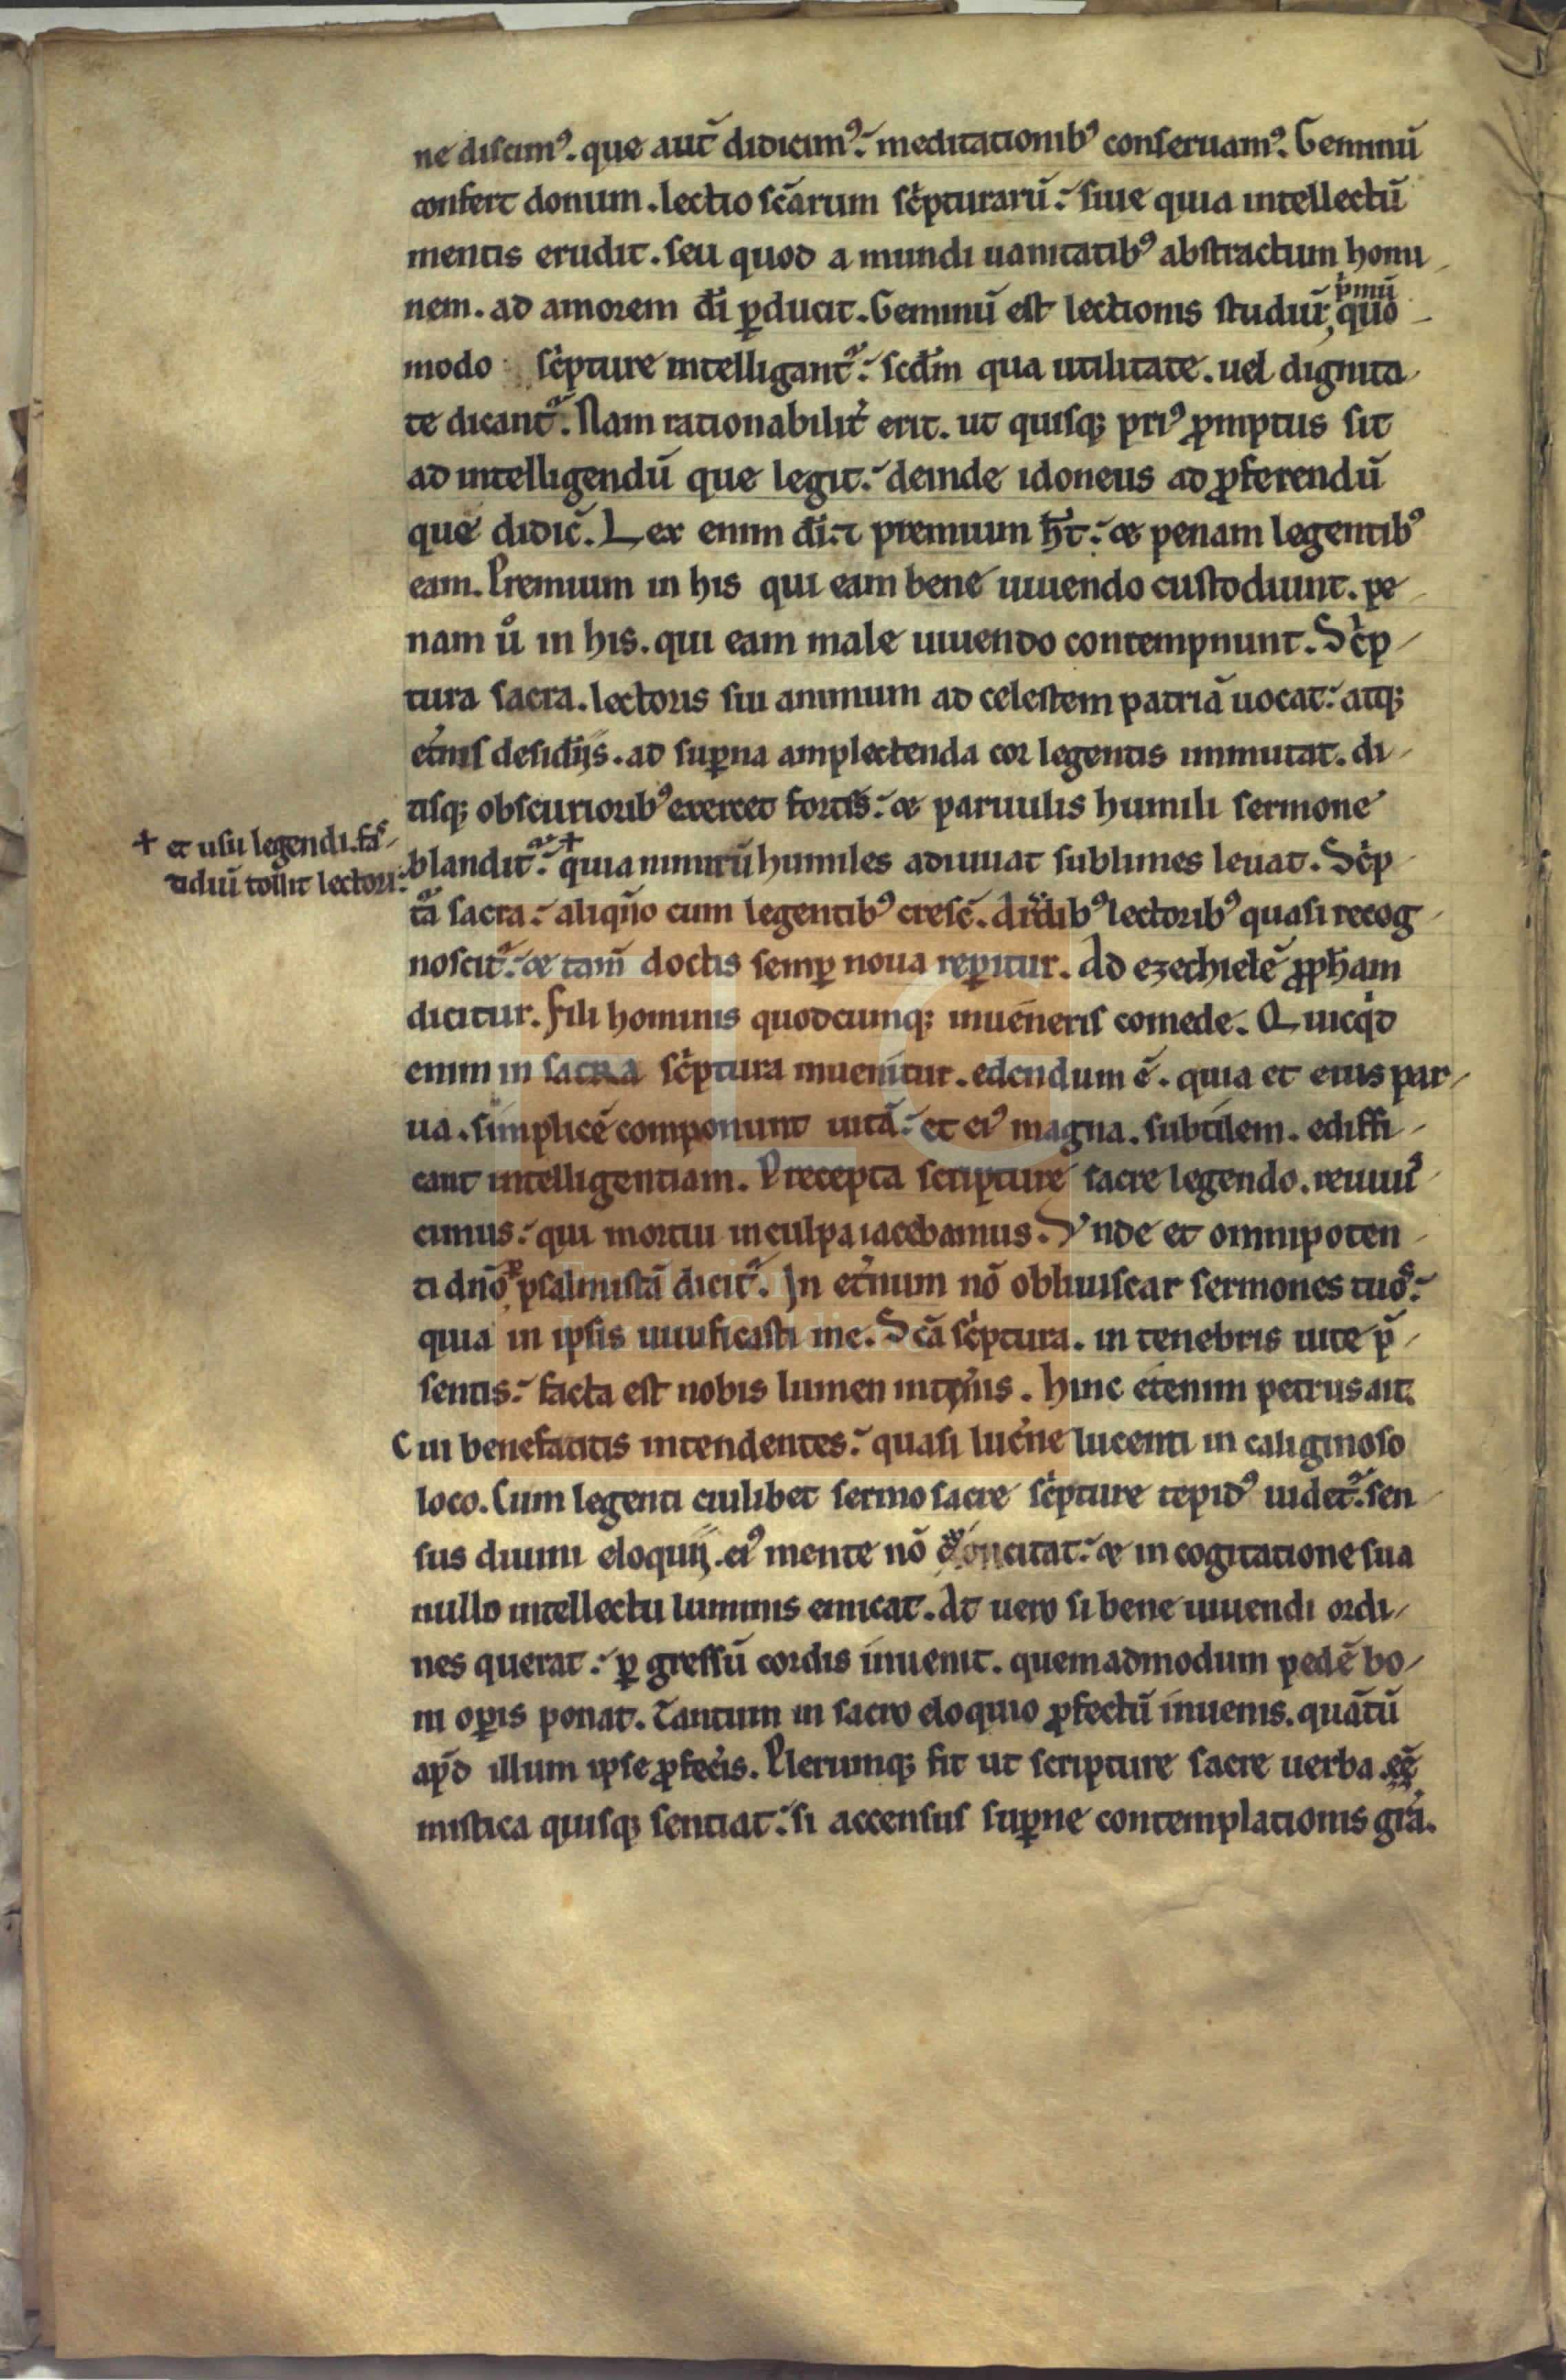 ne discimꝰ. que aut̄ didicimꝰ. meditationibꝰ conseruamꝰ. Geminū
confert donum. lectio sc̄arum sc̄pturarū. siue quia intellectū
mentis erudit. seu quod a mundi uanitatibꝰ abstractum homi
nem. ad amorem dī ꝑducit. Geminū est lectionis studiū, p̄mū quo
modo sc̄pture intelligant᷑. scd̄m qua utilitate. uel dignita
te dicant᷑. Nam rationabilit̄ erit. ut quisqꝫ priꝰ ꝓmptus sit
ad intelligendū que legit. deinde idoneus ad ꝓferendū
que didic̄. Lex enim dī. ⁊ premium ħt. & penam legentibꝰ
eam. Premium in his qui eam bene uiuendo custodiunt. pe
nam ů in his. qui eam male uiuendo contempnunt. Sc̄p
tura sacra. lectoris sui animum ad celestem patriā uocat. atqꝫ
et̄nis desidīis. ad suꝑna amplectenda cor legentis immutat. di
tisqꝫ obscurioribꝰ exercet fortes. & paruulis humili sermone
+ et usu legendi. fas
tidiū tollit lectori.
blandit᷑. + quia nimirū humiles adiuuat sublimes leuat. Sc̄p
tā sacra. aliqͦ mͦ cum legentibꝰ cresc̄. A rudibꝰ lectoribꝰ quasi recog
noscit᷑. & tam̄ doctis semꝑ noua reꝑitur. Ad ezechielē ꝓph̄am
dicitur. Fili hominis quodcumqꝫ inueneris comede. Quicqͥd
enim in sacra sc̄ptura inuenitur. edendum ē. quia et eius par
ua. simplicē componunt uitā. et eiꝰ magna. subtilem. ediffi
cant intelligentiam. Precepta scripture sacre legendo. reuiuis
cimus. qui mortui in culpa iacebamus. Vnde et omnipoten
ti dn̄o ꝑ psalmistā dicit᷑. In et̄num nō obliuiscar sermones tuos.
quia in ipsis uiuificasti me. Sc̄a sc̄ptura. in tenebris uite p̄
sentis. facta est nobis lumen itin̄is. Hinc etenim petrus ait.
Cui benefacitis intendentes. quasi luc̄ne lucenti in caliginoso
loco. Cum legenti cuilibet sermo sacre sc̄pture tepidꝰ uidet᷑. sen
sus diuini eloquii. eiꝰ mente nō concitat. & in cogitatione sua
nullo intellectu luminis emicat. At uero si bene uiuendi ordi
nes querat. ꝑ gressū cordis inuenit. quemadmodum pedē bo
ni oꝑis ponat. Tantum in sacro eloquio ꝓfectū inuenis. quātū
apd̄ illum ipse ꝓfec̄is. Plerumqꝫ fit ut scripture sacre uerba. eē
mistica quisqꝫ sentiat. si accensus suꝑne contemplationis grā.